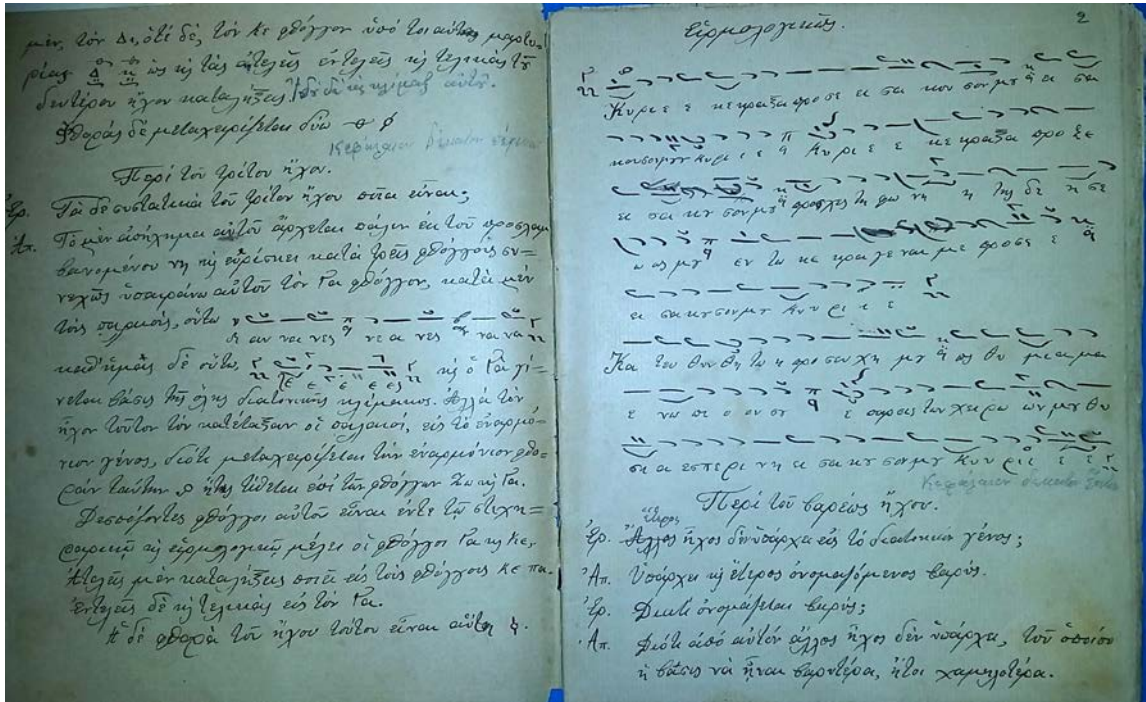 μὲν, τὸν Δι, ὁτὲ δὲ, τὸν Κε φθόγγον ὑπὸ τοιαύτας μαρτυ-
ρίας ὡς κỳ τὰς ἀτελεῖς ἐντελεῖς κỳ τελικὰς τοῦ
δευτέρου ἤχου καταλήξεις. Ἡ δὲ κλίμαξ αὐτοῦ.
Φθορὰς δὲ μεταχειρίζεται δύω
Κεφάλαιον δέκατον πέμπτον
Περὶ τοῦ τρίτου ἤχου.
Ἐρ. Τὰ δὲ συστατικὰ τοῦ τρίτου ἤχου ποῖα εἶναι;
Ἀπ. Τὸ μὲν ἀπήχημα αὐτοῦ ἄρχεται πάλιν ἐκ τοῦ προσλαμ
βανομένου νη κỳ εὑρίσκει κατὰ τρεῖς φθόγγους συ-
νεχῶς ὑπεράνω αὐτοῦ τὸν Γα φθόγγον, κατὰ μὲν
τοὺς παλαιοὺς, οὕτω
νες νε α νες να να
καθ' ἡμᾶς δὲ οὕτω, κỳ ὁ Γα γί-
νεται βάσις τῆς ὅλης διατονικῆς κλίμακος. Ἀλλὰ τὸν
ἦχον τοῦτον τὸν κατέταξαν οἱ παλαιοὶ, εἰς τὸ ἐναρμό-
νιον γένος, διότι μεταχειρίζεται τὴν ἐναρμόνιον φθο-
ρὰν ταύτην ἥτις τίθεται ἐπὶ τῶν φθόγγων Ζω κỳ Γα.
Δεσπόζοντες φθόγγοι αὐτοῦ εἶναι ἔν τε τῷ στιχη-
ραρικῷ κỳ εἱρμολογικῷ μέλει οἱ φθόγγοι Γα κỳ Κε,
Ἀτελεῖς μὲν καταλήξεις ποιεῖ εἰς τοὺς φθόγγους Κε πα.
Ἐντελεῖς δὲ κỳ τελικὰς εἰς τὸν Γα.
Ἡ δὲ φθορὰ τοῦ ἤχου τούτου εἶναι αὕτη
2
Εἱρμολογικῶς.
Κυ ρι ε ε κε κρα ξα προ σε ει σα κου σον μου ει σα
κουσον μου Κυ ρι ε Κυ ρι ε ε κε κρα ξα προ σε
ει σα κου σον μου προσχες τη φω νη η της δε η σε
ω ως μου εν τω κε κρα γε ναι με προς σε ε
ει σα κου σον μου Κυ υ ρι ε ε
Κα τευ θυν θη τω η προ σευ χη μου ως θυ μι α μα
ε νω πι ο ον σου ε παρσις των χει ρω ων μου θυ
σι α εσπε ρι νη ει σα κου σον μου Κυ υ ρι ε ε
Κεφάλαιον δέκατον ἕκτον
Περὶ τοῦ βαρέως ἤχου.
Ἐρ. ἦχος δὲν ὑπάρχει εἰς τὸ διατονικὸν γένος;
Ἀπ. Ὑπάρχει κỳ ἕτερος ὀνομαζόμενος βαρύς.
Ἐρ. Διατί ὀνομάζεται βαρύς;
Ἀπ. Διότι ἀπὸ αὐτὸν ἄλλος ἦχος δὲν ὑπάρχει, τοῦ ὁποίου
ἡ βάσις νὰ ἦναι βαρυτέρα, ἤτοι χαμηλοτέρα.